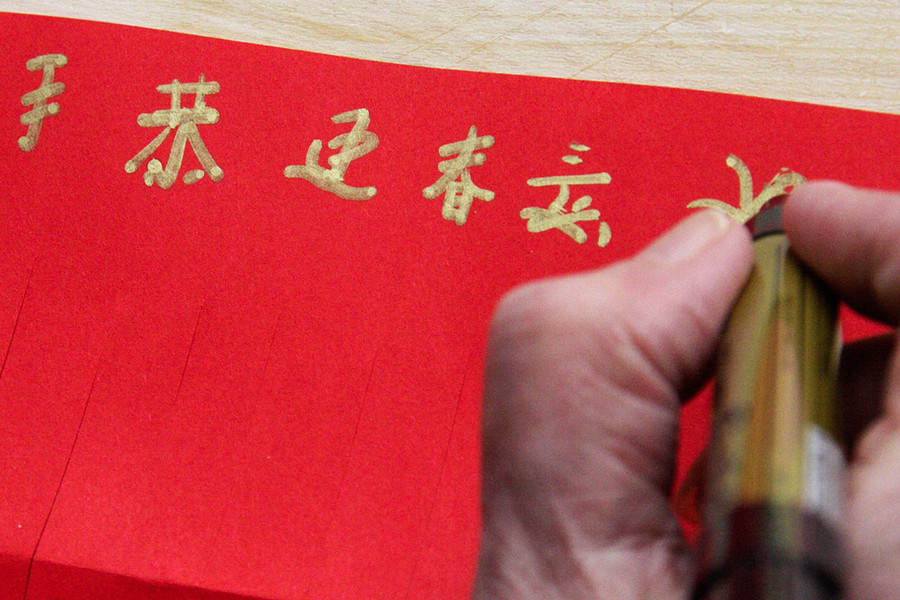 手恭迎春意